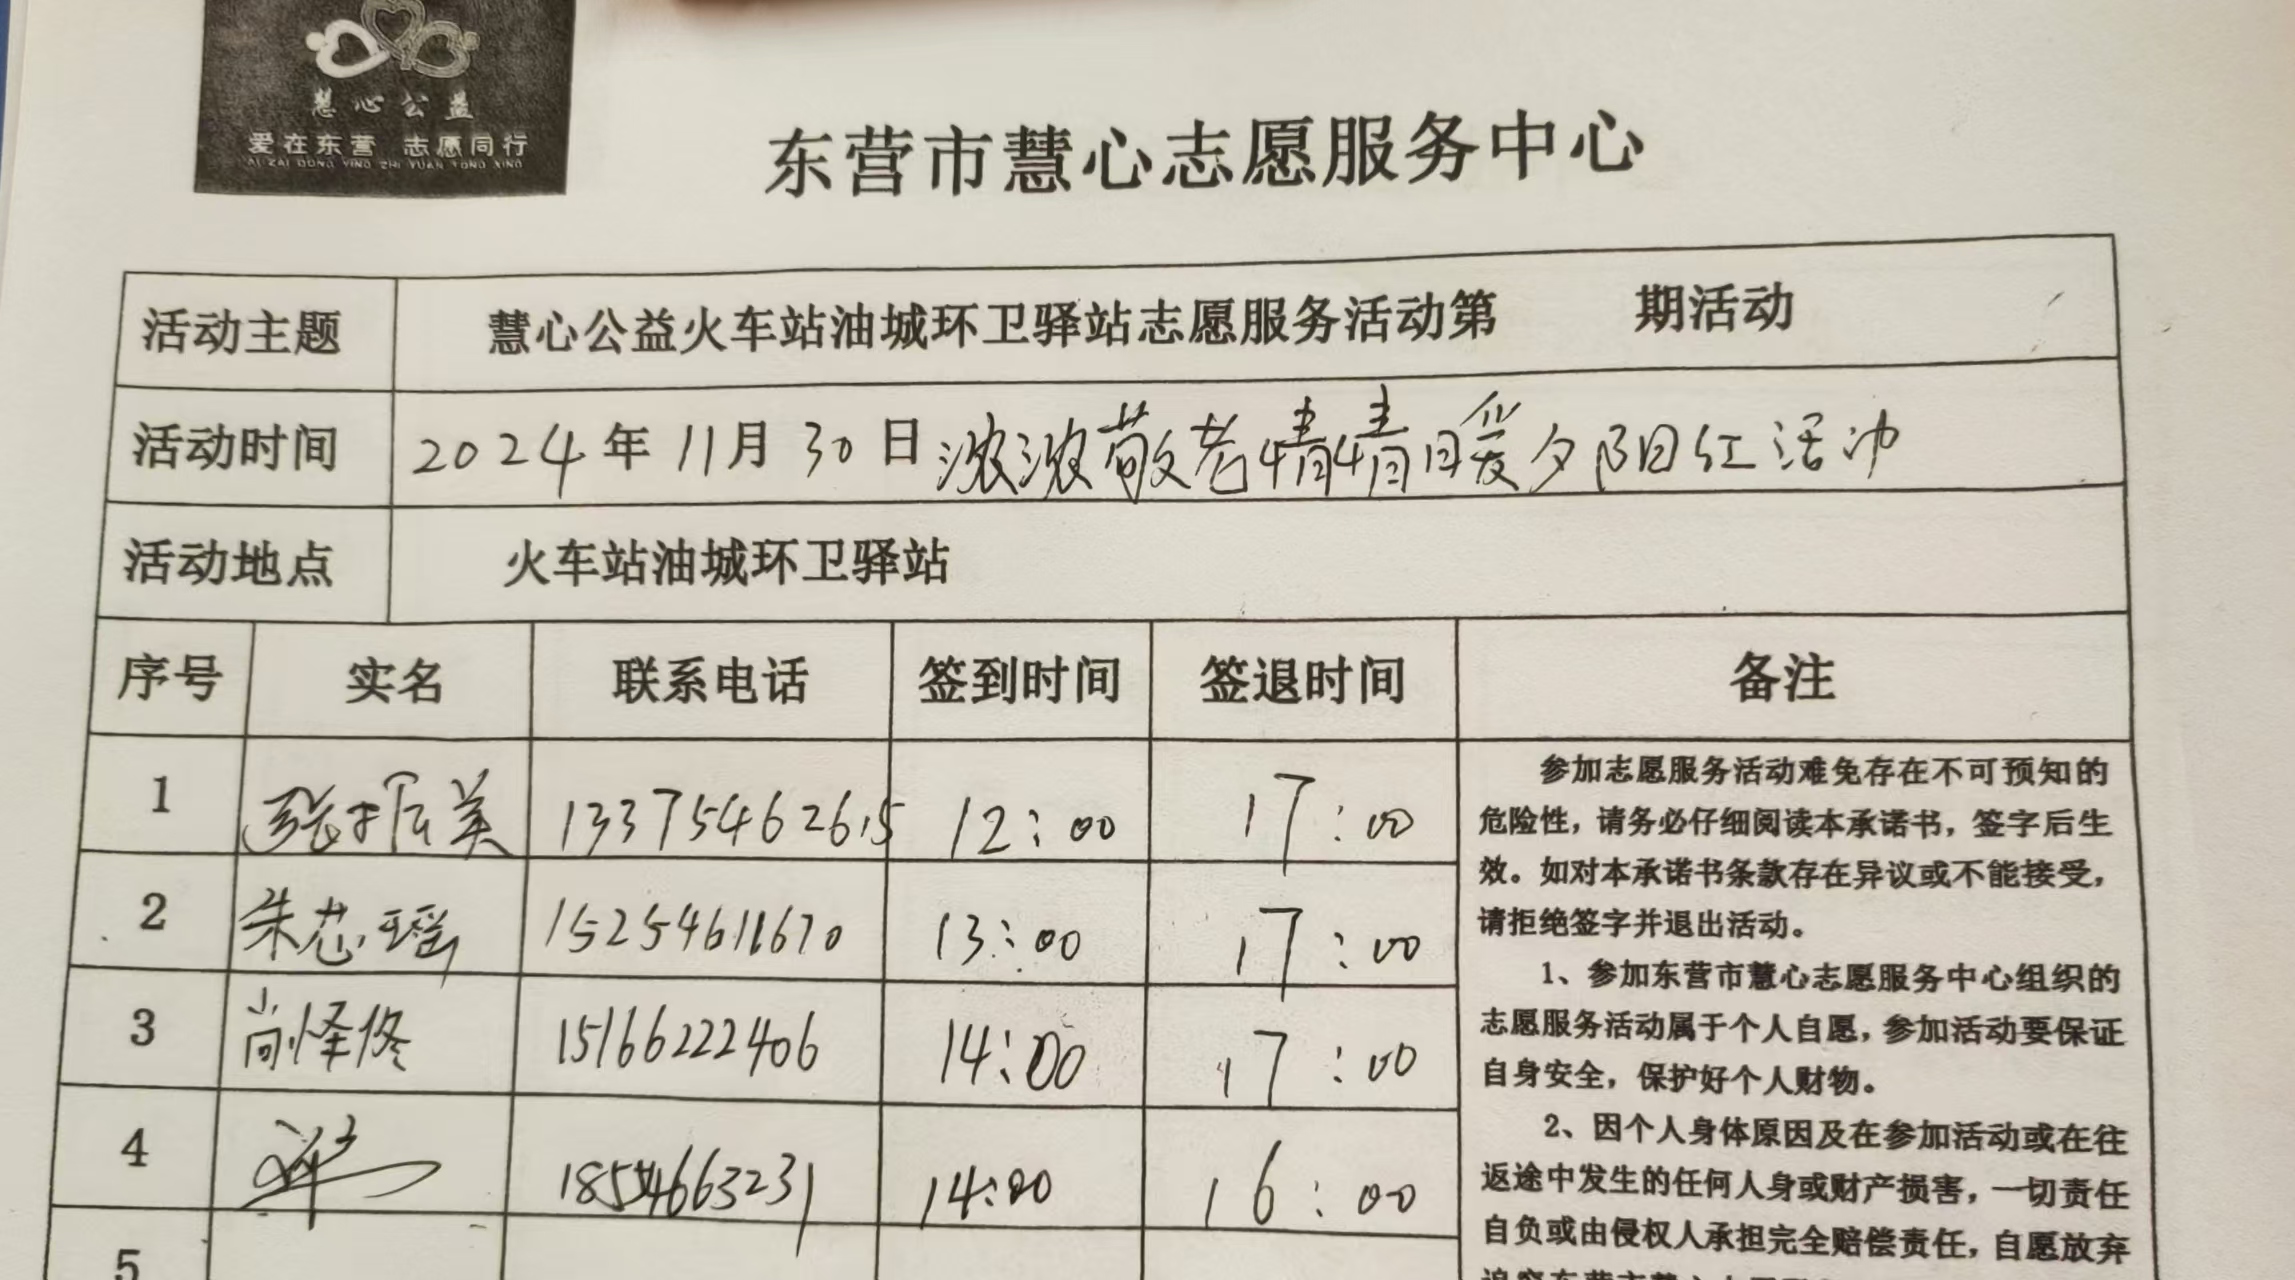 慧心公益
爱在东营 志愿同行
AI ZAI DONG YING ZHI YUAN TONG XING
东营市慧心志愿服务中心
活动主题 慧心公益火车站油城环卫驿站志愿服务活动第 期活动
活动时间 2024年11月30日浓浓敬老情情暖夕阳红活动
活动地点 火车站油城环卫驿站
序号 实名 联系电话 签到时间 签退时间 备注
1 张振美 13375462615 12:00 17:00
2 朱芯瑶 15254611670 13:00 17:00
3 尚怿佟 15166222406 14:00 17:00
4 18554663231 14:00 16:00
5
参加志愿服务活动难免存在不可预知的
危险性，请务必仔细阅读本承诺书，签字后生
效。如对本承诺书条款存在异议或不能接受，
请拒绝签字并退出活动。
1、参加东营市慧心志愿服务中心组织的
志愿服务活动属于个人自愿，参加活动要保证
自身安全，保护好个人财物。
2、因个人身体原因及在参加活动或在往
返途中发生的任何人身或财产损害，一切责任
自负或由侵权人承担完全赔偿责任，自愿放弃